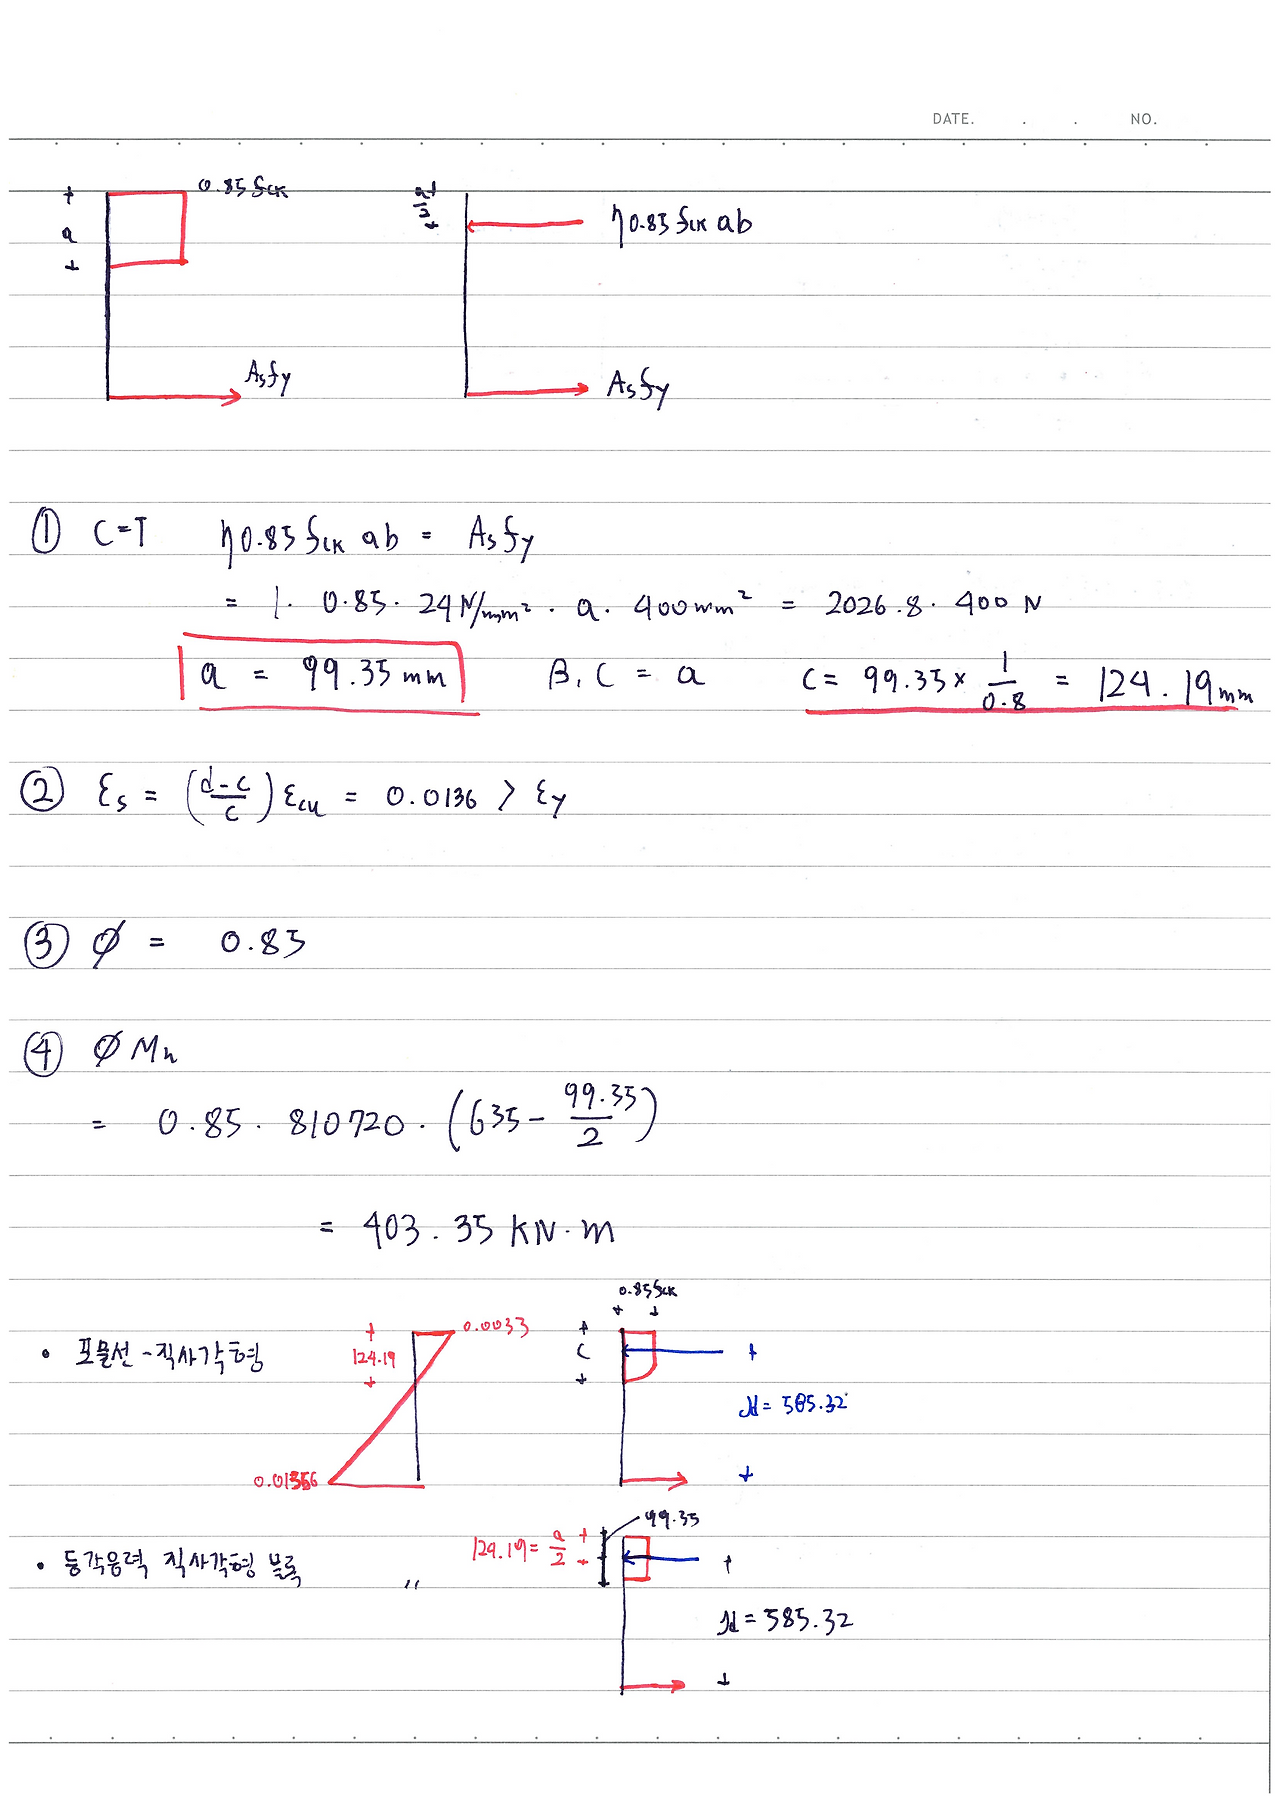 DATE. . . NO.
0.85 fck
a
Asfy
a/2
η0.85 fck ab
Asfy
① C=T η0.85 fck ab = Asfy
= 1. 0.85. 24N/mm² · a. 400mm² = 2026.8. 400 N
a = 99.35 mm β₁C = a C = 99.35 × 1/0.8 = 124.19mm
② εs = (d-c/c) εcu = 0.0136 > εy
③ ∅ = 0.85
④ ∅ Mn
= 0.85. 810720. (635 - 99.35/2)
= 403.35 kN·m
• 포물선-직사각형
124.19
0.0033
0.01356
0.85fck
C
Jd = 585.32
• 등가응력 직사각형 블록 〃
129.19 = a/2
99.35
Jd = 585.32